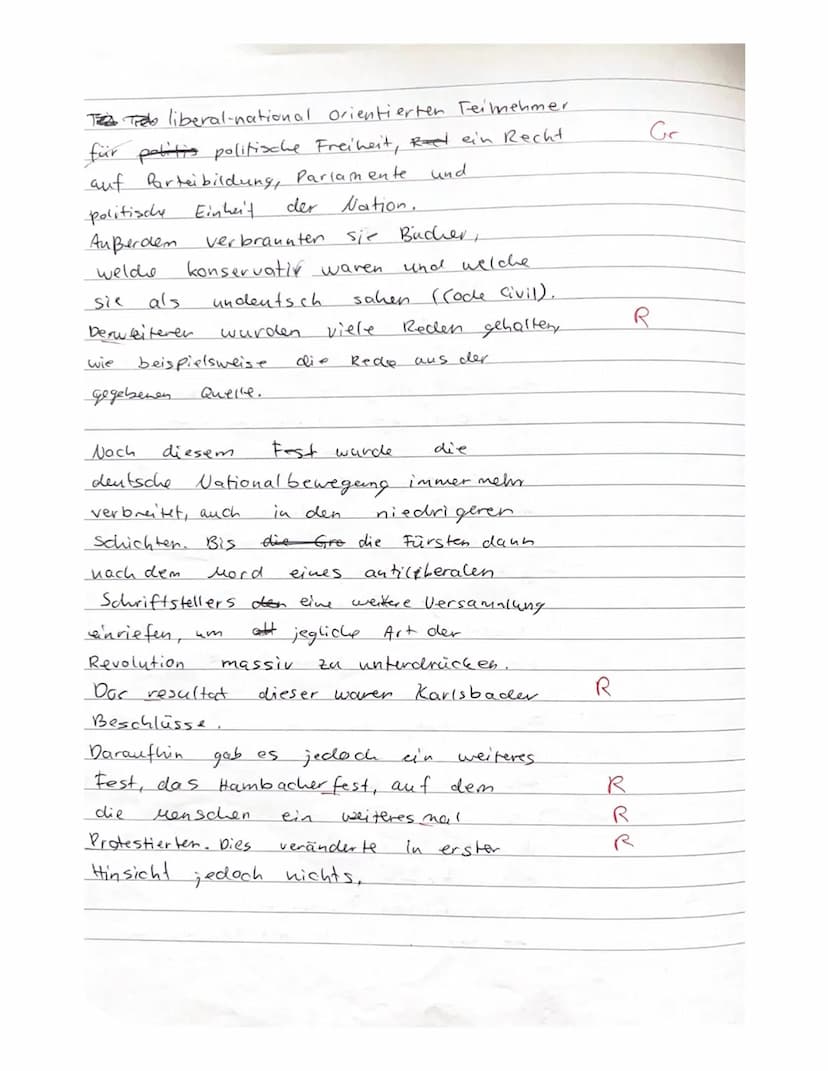 liberal-national orientierten Teilnehmer
für politische Freiheit, ein Recht Gr
auf Parteibildung, Parlamente und
politische Einheit der Nation.
Außerdem verbrannten sie Bücher,
welche konservativ waren und welche
sie als undeutsch sahen (Code Civil).
Desweiteren wurden viele Reden gehalten, R
wie beispielsweise die Rede aus der
gegebenen Quelle.
Nach diesem Fest wurde die
deutsche Nationalbewegung immer mehr
verbreitet, auch in den niedrigeren
Schichten. Bis die Fürsten dann
nach dem Mord eines antiliberalen
Schriftstellers eine weitere Versammlung
einriefen, um jegliche Art der
Revolution massiv zu unterdrücken.
Das resultat dieser waren Karlsbader R
Beschlüsse.
Daraufhin gab es jedoch ein weiteres
Fest, das Hambacher fest, auf dem R
die Menschen ein weiteres mal R
Protestierten. Dies veränderte in erster R
Hinsicht jedoch nichts.